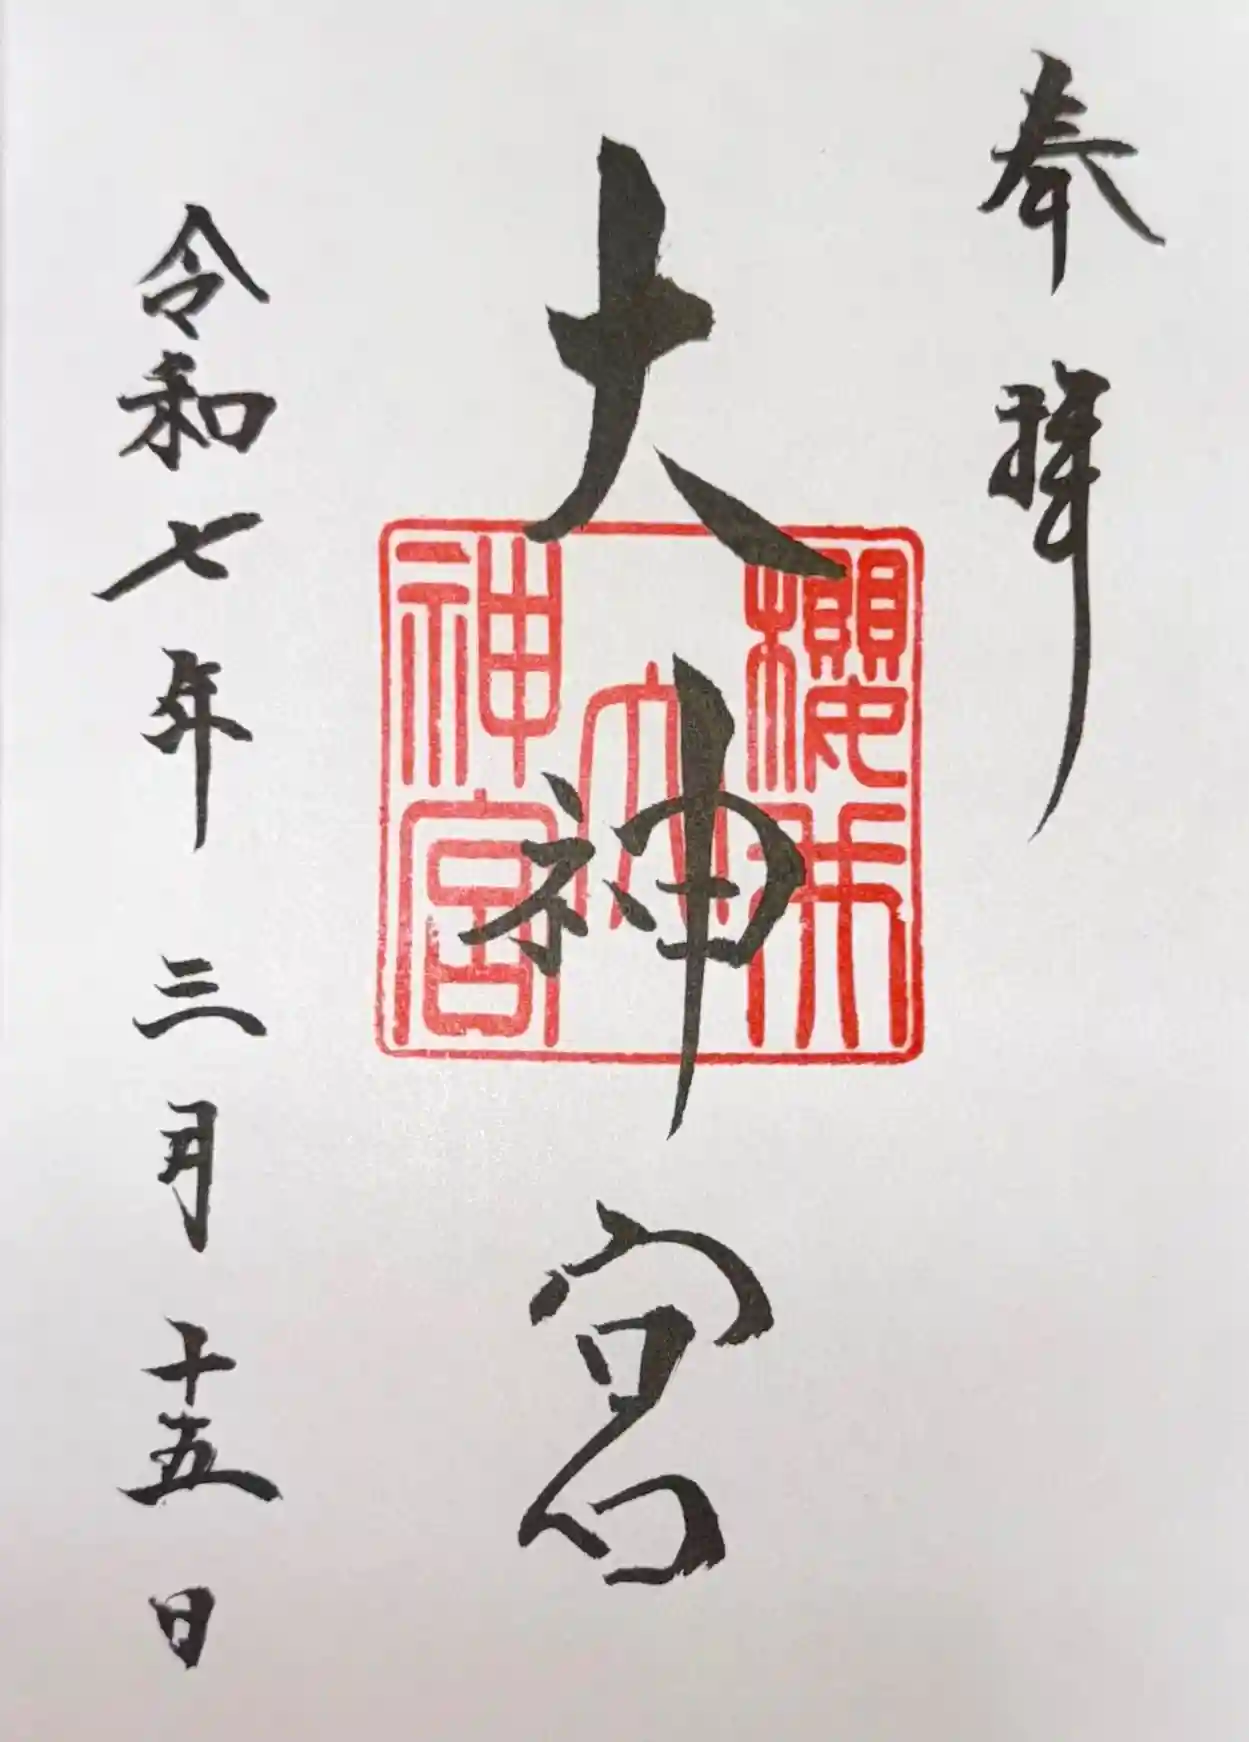 奉拝
大神宮
櫻木
大
神宮
令和七年三月十五日